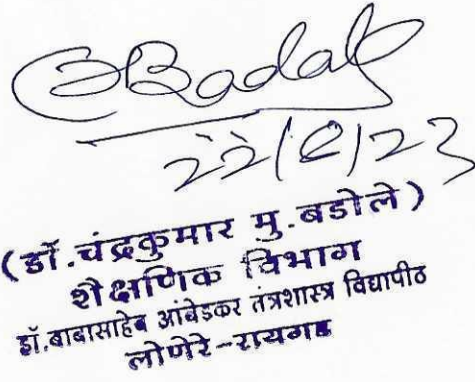 २२/८/२३
(डॉ.चंद्रकुमार मु.बडोले)
शैक्षणिक विभाग
डॉ.बाबासाहेब आंबेडकर तंत्रशास्त्र विद्यापीठ
लोणेरे-रायगड